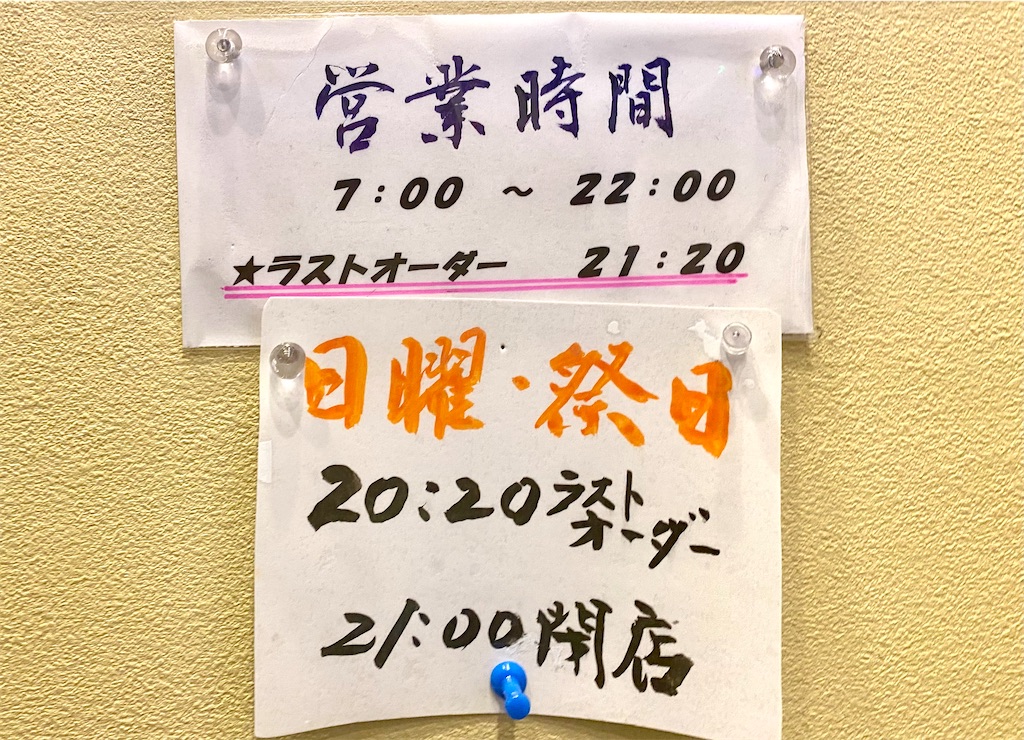 営業時間
7:00 ～ 22:00
★ラストオーダー 21:20
日曜・祭日
20:20 ラスト
オーダー
21:00 閉店